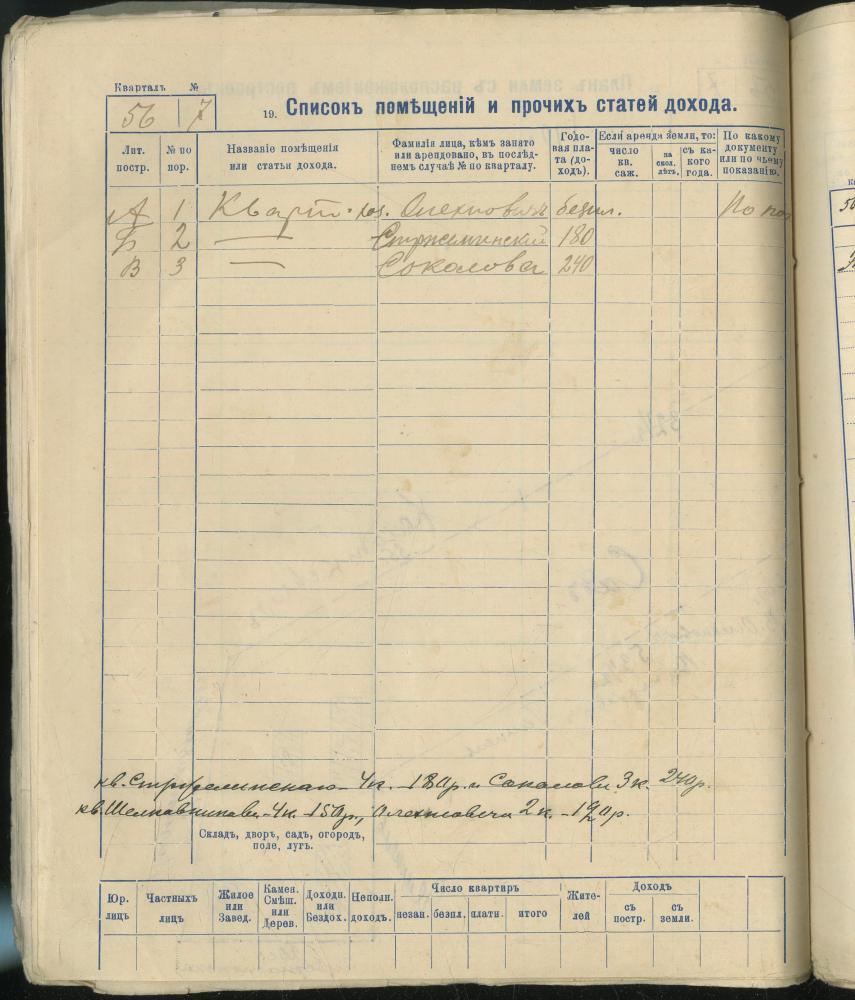 Кварталъ №
56 7
19. Списокъ помѣщеній и прочихъ статей дохода.
Лит. постр.
№ по пор.
Названіе помѣщенія или статьи дохода.
Фамилія лица, кѣмъ занято или арендовано, въ послѣднемъ случаѣ № по кварталу.
Годовая плата (доходъ).
Если аренда земли, то:
число кв. саж.
на скол. лѣтъ.
съ какого года.
По какому документу или по чьему показанію.
А 1 Кварт. хоз. Олехновичъ безпл. По по
Б 2 — Стржеминский 180
В 3 — Соколова 240
кв. Стржеминскаго 4 к. - 180 р. и Соколовой 3 к. 240 р.
кв. 4 к. - 150 р., Олехновича 2 к. - р.
Складъ, дворъ, садъ, огородъ,
поле, лугъ.
Юр. лицъ
Частныхъ лицъ
Жилое или Завед.
Камен. Смѣш. или Дерев.
Доходн. или Бездох.
Неполн. доходъ.
Число квартиръ
незан. безпл. платн. итого
Жителей
Доходъ
съ постр. съ земли.
50